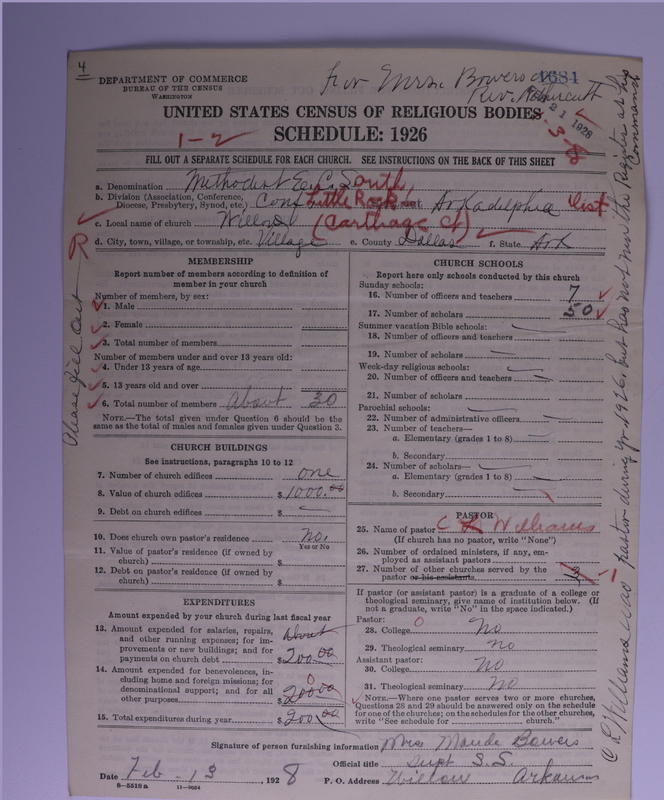 4
DEPARTMENT OF COMMERCE
BUREAU OF THE CENSUS
WASHINGTON
For Mrs. Bowers or
Rev.
1684
21 1928
UNITED STATES CENSUS OF RELIGIOUS BODIES
SCHEDULE: 1926
1-2
FILL OUT A SEPARATE SCHEDULE FOR EACH CHURCH. SEE INSTRUCTIONS ON THE BACK OF THIS SHEET
a. Denomination Methodist E. C. South
b. Division (Association, Conference, Diocese, Presbytery, Synod, etc.) Conf Little Rock Arkadelphia Dist
c. Local name of church Willow (Carthage Ct)
d. City, town, village, or township, etc. Village e. County Dallas f. State Ark
MEMBERSHIP
Report number of members according to definition of
member in your church
Number of members, by sex:
1. Male
2. Female
3. Total number of members
Number of members under and over 13 years old:
4. Under 13 years of age
5. 13 years old and over
6. Total number of members About 30
NOTE.—The total given under Question 6 should be the
same as the total of males and females given under Question 3.
CHURCH BUILDINGS
See instructions, paragraphs 10 to 12
7. Number of church edifices one
8. Value of church edifices $1000.00
9. Debt on church edifices $
10. Does church own pastor's residence? no.
Yes or No
11. Value of pastor's residence (if owned by
church) $
12. Debt on pastor's residence (if owned by
church) $
EXPENDITURES
Amount expended by your church during last fiscal year
13. Amount expended for salaries, repairs,
and other running expenses; for im-
provements or new buildings; and for
payments on church debt About $200.00
14. Amount expended for benevolences, in-
cluding home and foreign missions; for
denominational support; and for all
other purposes $200.00 0
15. Total expenditures during year $200.00
CHURCH SCHOOLS
Report here only schools conducted by this church
Sunday schools:
16. Number of officers and teachers 7
17. Number of scholars 50
Summer vacation Bible schools:
18. Number of officers and teachers
19. Number of scholars
Week-day religious schools:
20. Number of officers and teachers
21. Number of scholars
Parochial schools:
22. Number of administrative officers
23. Number of teachers—
a. Elementary (grades 1 to 8)
b. Secondary
24. Number of scholars—
a. Elementary (grades 1 to 8)
b. Secondary
PASTOR
25. Name of pastor C R Williams
(If church has no pastor, write "None")
26. Number of ordained ministers, if any, em-
ployed as assistant pastors
27. Number of other churches served by the
pastor or his assistants 3 -1
If pastor (or assistant pastor) is a graduate of a college or
theological seminary, give name of institution below. (If
not a graduate, write "No" in the space indicated.)
Pastor:
28. College 0 no
29. Theological seminary no
Assistant pastor:
30. College No
31. Theological seminary No
NOTE.—Where one pastor serves two or more churches,
Questions 28 and 29 should be answered only on the schedule
for one of the churches; on the schedules for the other churches,
write "See schedule for church."
Signature of person furnishing information Mrs Maude Bowers
Official title Supt S.S.
Date Feb - 13, 1928 P. O. Address Willow Arkansas
8-5518a 11-9034
Please fill out
C R Williams was pastor during yr 1926, but has not now the Register at his command